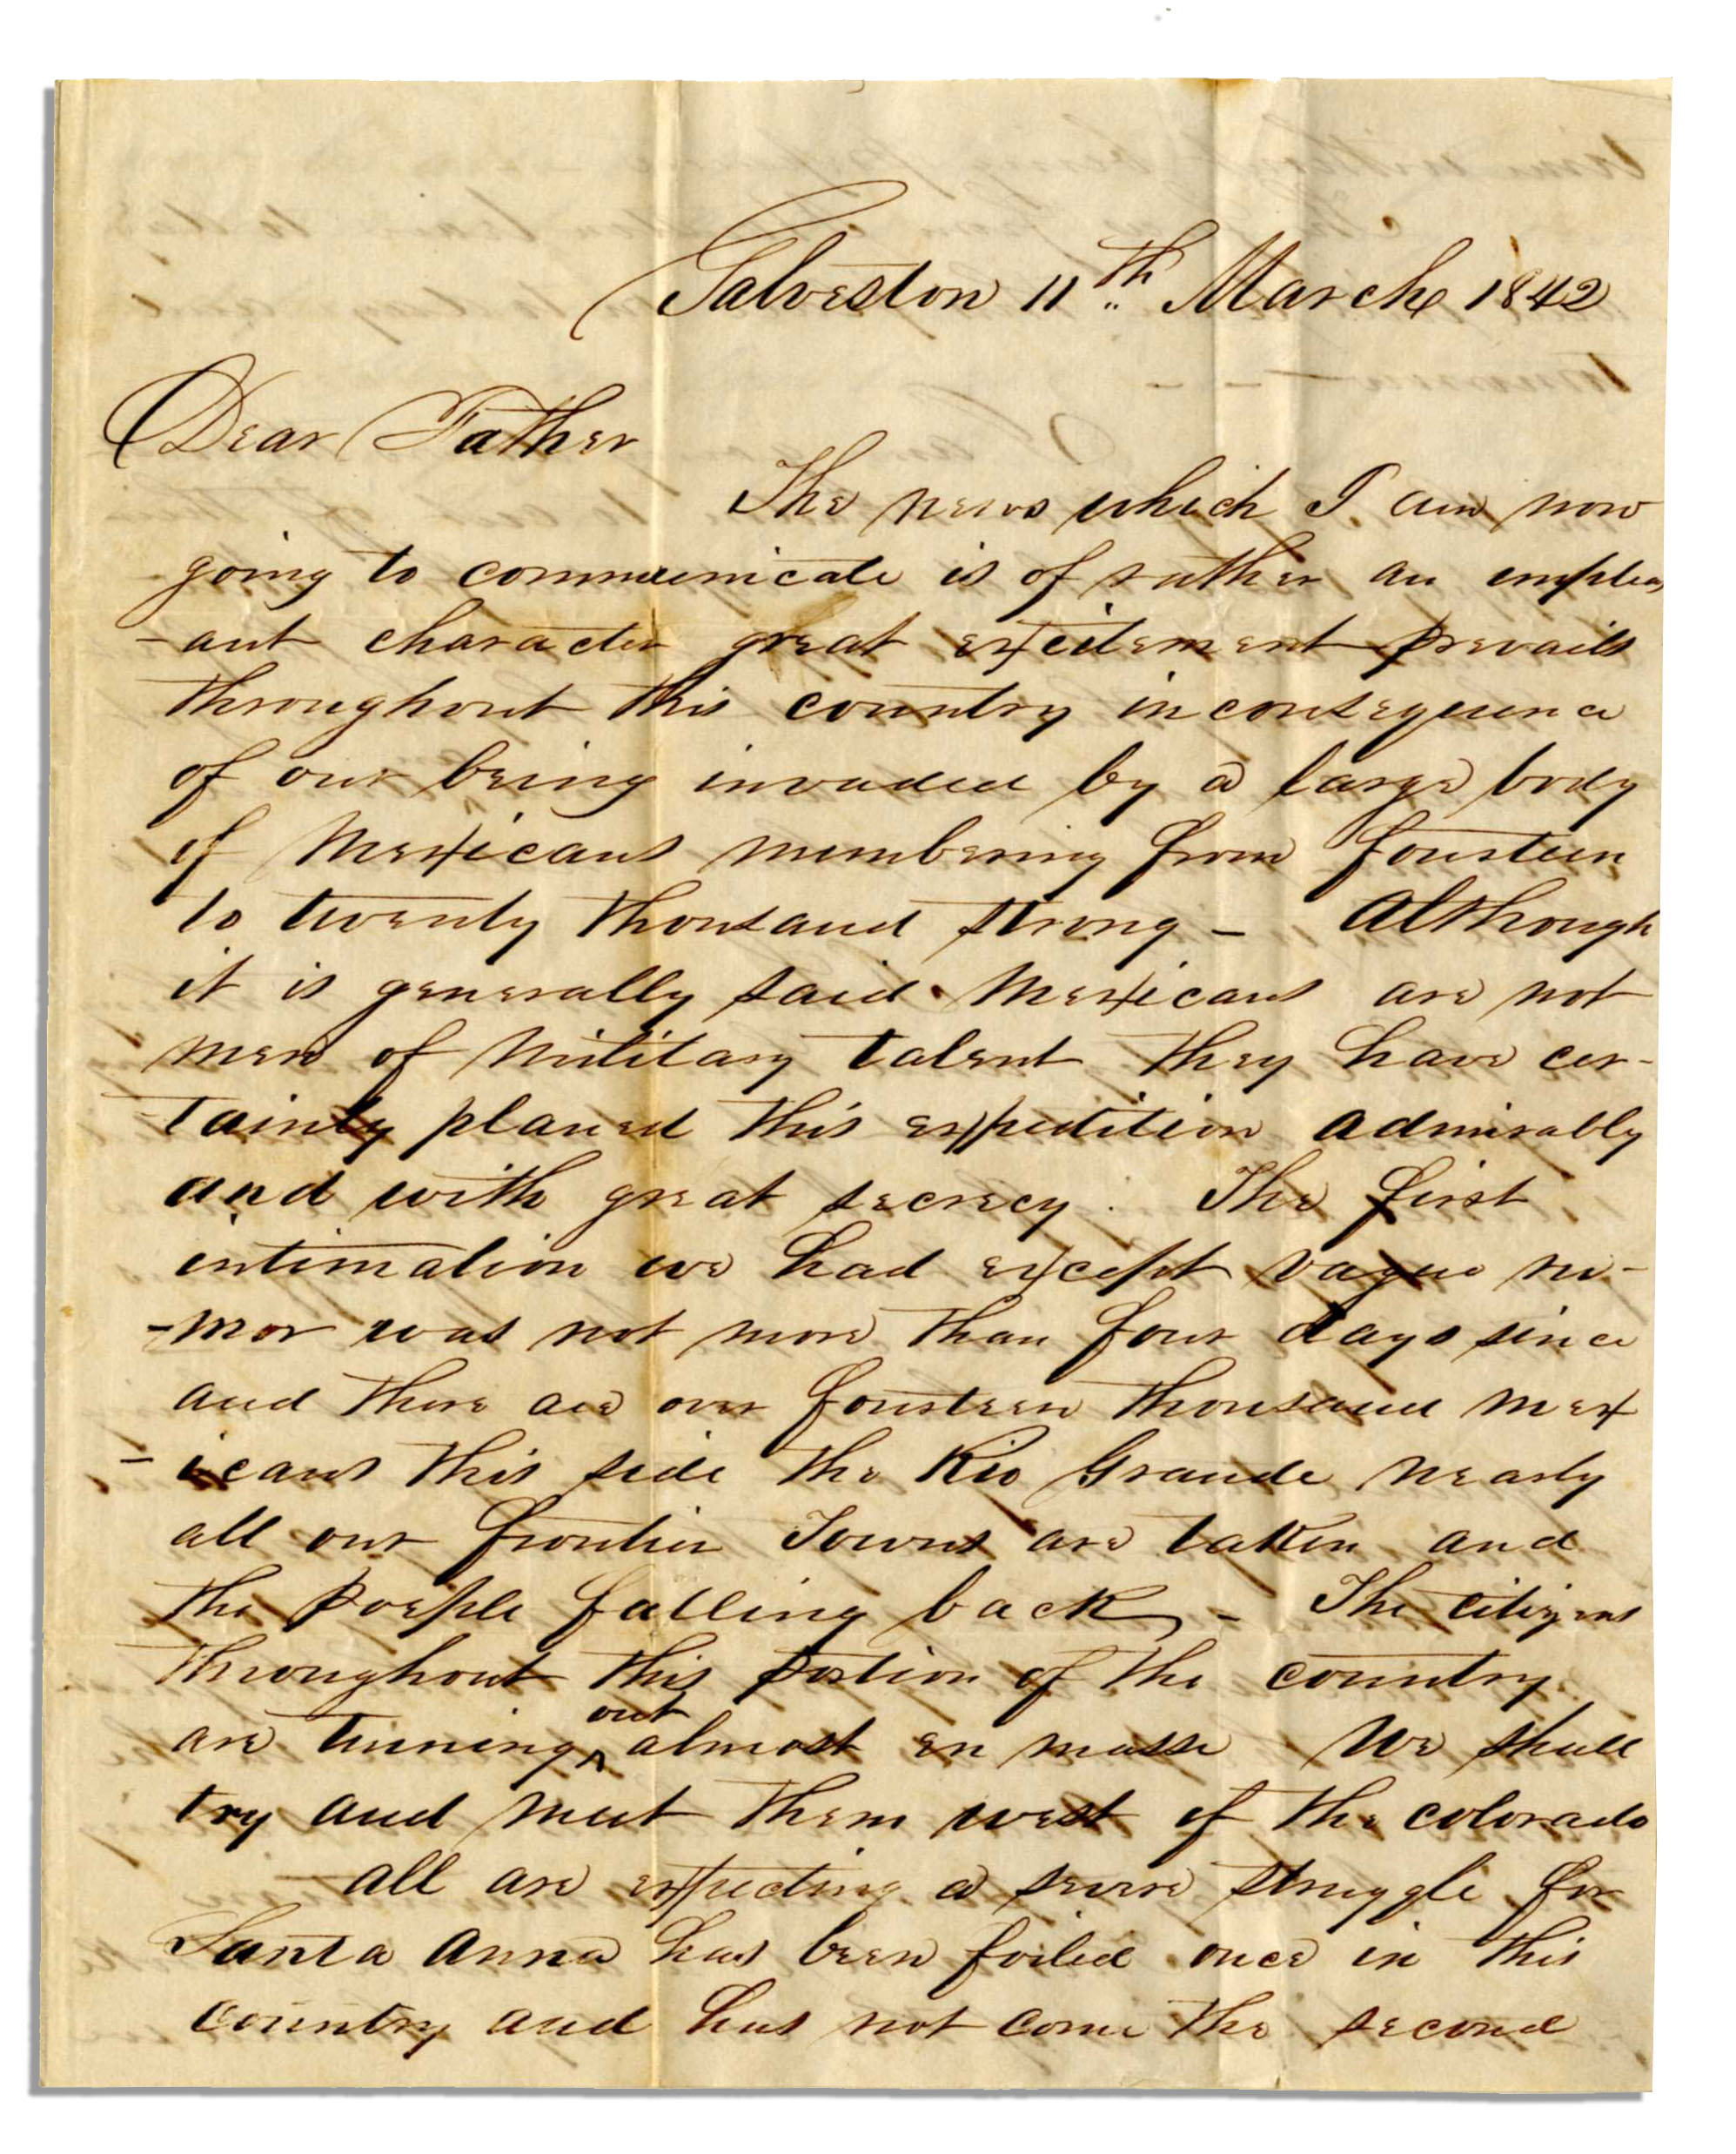 Galveston 11th March 1842
Dear Father
The news which I am now
going to communicate is of rather an unpleas
-ant character great excitement prevails
throughout this country in consequence
of our being invaded by a large body
of Mexicans numbering from fourteen
to twenty thousand strong - Although
it is generally said Mexicans are not
men of Military talent they have cer-
tainly planed this expedition admirably
and with great secrecy. The first
intimation we had except vague ru-
-mor was not more than four days since
and there are over fourteen thousand Mex
-icans this side the Rio Grande nearly
all our frontier Towns are taken and
the People falling back - The citizens
throughout this portion of the country
are turning out almost en masse We shall
try and meet them west of the Colorado
all are expecting a severe struggle for
Santa Anna has been foiled once in this
country and has not come the second